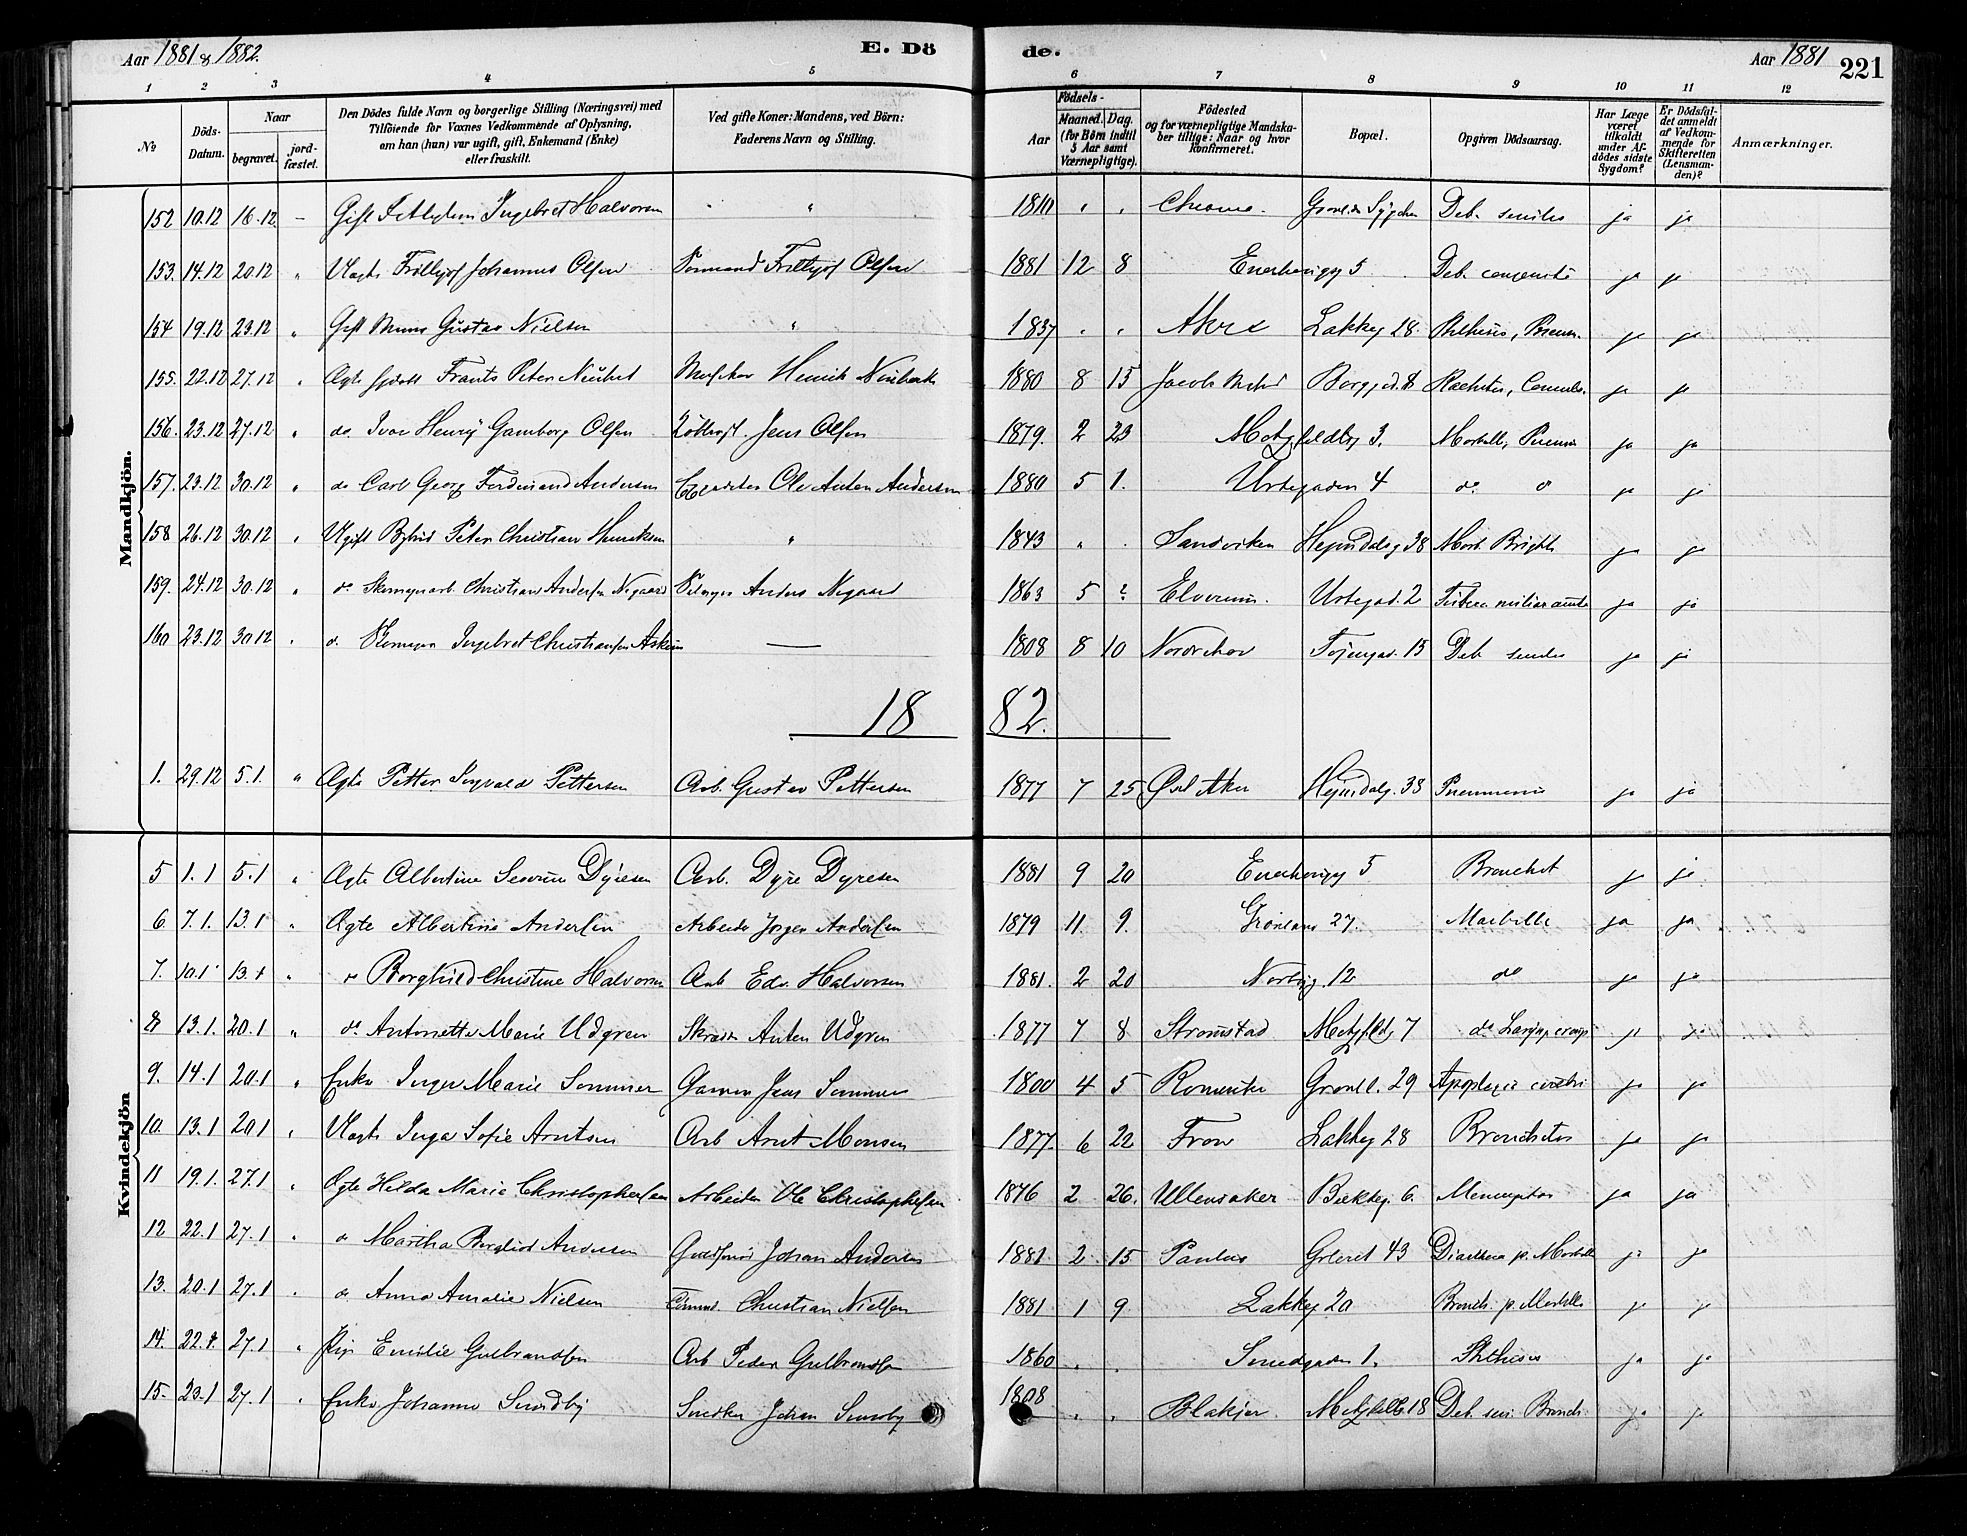 Aar 1881 & 1882. E. Dö de. Aar 1881 221
1 2 3 4 5 6 7 8 9 10 11 12
No Döds-Datum. Naar begravet. jord-fæstet. Den Dödes fulde Navn og borgerlige Stilling (Næringsvei) med Tilföiende for Voxnes Vedkommende af Oplysning, om han (hun) var ugift, gift, Enkemand (Enke) eller fraskilt. Ved gifte Koner: Mandens, ved Börn: Faderens Navn og Stilling. Födsels- Aar Maaned. Dag. (for Börn indtil 5 Aar samt Værnepligtige). Födested og for værnepligtige Mandskaber tillige: Naar og hvor konfirmeret. Bopæl. Opgiven Dödsaarsag. Har Læge været tilkaldt under Afdödes sidste Sygdom? Er Dödsfaldet anmeldt af Vedkommende for Skifteretten (Lensmanden)? Anmærkninger.
Mandkjön.
152 10.12 16.12 – Gift Ingebret Halvorsen " 1810 " " Deb. senilis ja ja
153. 14.12 20.12 " Uægte Frithjof Johannes Olsen Frithjof Olsen 1881 12 8 Enerhaugg 5 Deb. congenita ja ja
154 19.12 23.12 " Gift Murer Gustav Nielsen " 1837 " " Aker Lakkeg 28. Phthisis, Pneum. ja ja
155. 22.12 27.12 " Ægte Frants Peter Henrik 1880 8 15 Borgg ja ja
156. 23.12 27.12 " do Ivar Henrÿ Gamborg Olsen Jens Olsen 1879. 2 23 Motzfeldtsg 3. Morbilli, Pneum ja ja
157. 23.12 30.12 " do Carl Georg Ferdinand Andersen Ole Anton Andersen 1880 5 1. Urtegaden 4 do do ja ja
158 26.12 30.12 " Ugift Peter Christian Henriksen " 1843 " " Sandviken Hejmdalsg 38 Morb. Brighti ja ja
159. 24.12 30.12 " do Skomagerarb. Christian Andersen Nÿgaard Anders Nÿgaard 1863 5 ? Elverum. Urtegad. 2 ja ja
160 23.12 30.12 " do Skomager Ingebret Christiansen Askim — 1808 8 10 Norderhov Tøjengad. 15 Deb senilis ja ja
18 82.
1. 29.12 5.1. " Ægte Petter Sigvald Pettersen Arb. Gustav Pettersen 1877 7 25 Øst Aker Hejmdalsg. 38 Pneumoni ja ja
Kvindekjön
5 1.1 5.1 " Ægte Albertine Severine Dÿresen Arb. Dÿre Dÿresen 1881 9 20 Enerhaugg 5 Bronchit ja ja
6. 7.1. 13.1 " Ægte Albertine Andersen Arbeider Jørgen Andersen 1879 11 9. Grønland 27. Morbilli ja ja
7. 10.1 13.1 " do Borghild Christine Halvorsen Arb Edv. Halvorsen 1881. 2 20 Norbÿg 12 do ja ja
8 13.1. 20.1 " do Antonette Marie Udgren Skræd. Anton Udgren 1877 7 8 Strømstad Motzfeldg 7 do Laryng. croup ja ja
9. 14.1 20.1 " Enke Inger Marie Sommer Garver Jens Sommer 1800 4 5 Romerike Grønl. 29 Apoplexia cerebri ja ja
10. 13.1 20.1 " Uægte Inga Sofie Arntsen Arb Arnt Monsen 1877. 6 22 Fron Lakkeg 28 Bronchitis ja ja
11 19.1. 27.1 " Ægte Hilda Marie Christophersen Arbeider Ole Christophersen 1876 2 26. Ullensaker Bækkeg. 6. Meningitis ja ja
12 22.1 27.1 " do Martha Bergliot Andersen Johan Andersen 1881. 2 15 Paulus Grleret 43 Diarrhea p. Morbilli ja ja
13. 20.1 27.1 " do Anna Amalie Nielsen Tømmd. Christian Nielsen 1881 1 9 Lakkeg 20 Bronch. p. Morbilli ja ja
14. 22.1 27.1 " Pige Emilie Gulbrandsen Arb Peder Gulbrandsen 1860 " " Smedgaden 1. Phthisis ja ja
15. 23.1 27.1 " Enke Johanne Sundby Snedker Johan Sundby 1808 " " Blakjer Motzfeldtsg 18 Deb. sen. Bronch. ja ja